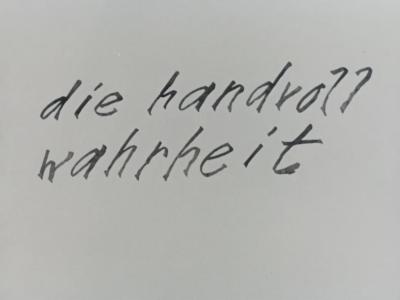 die handvoll
wahrheit